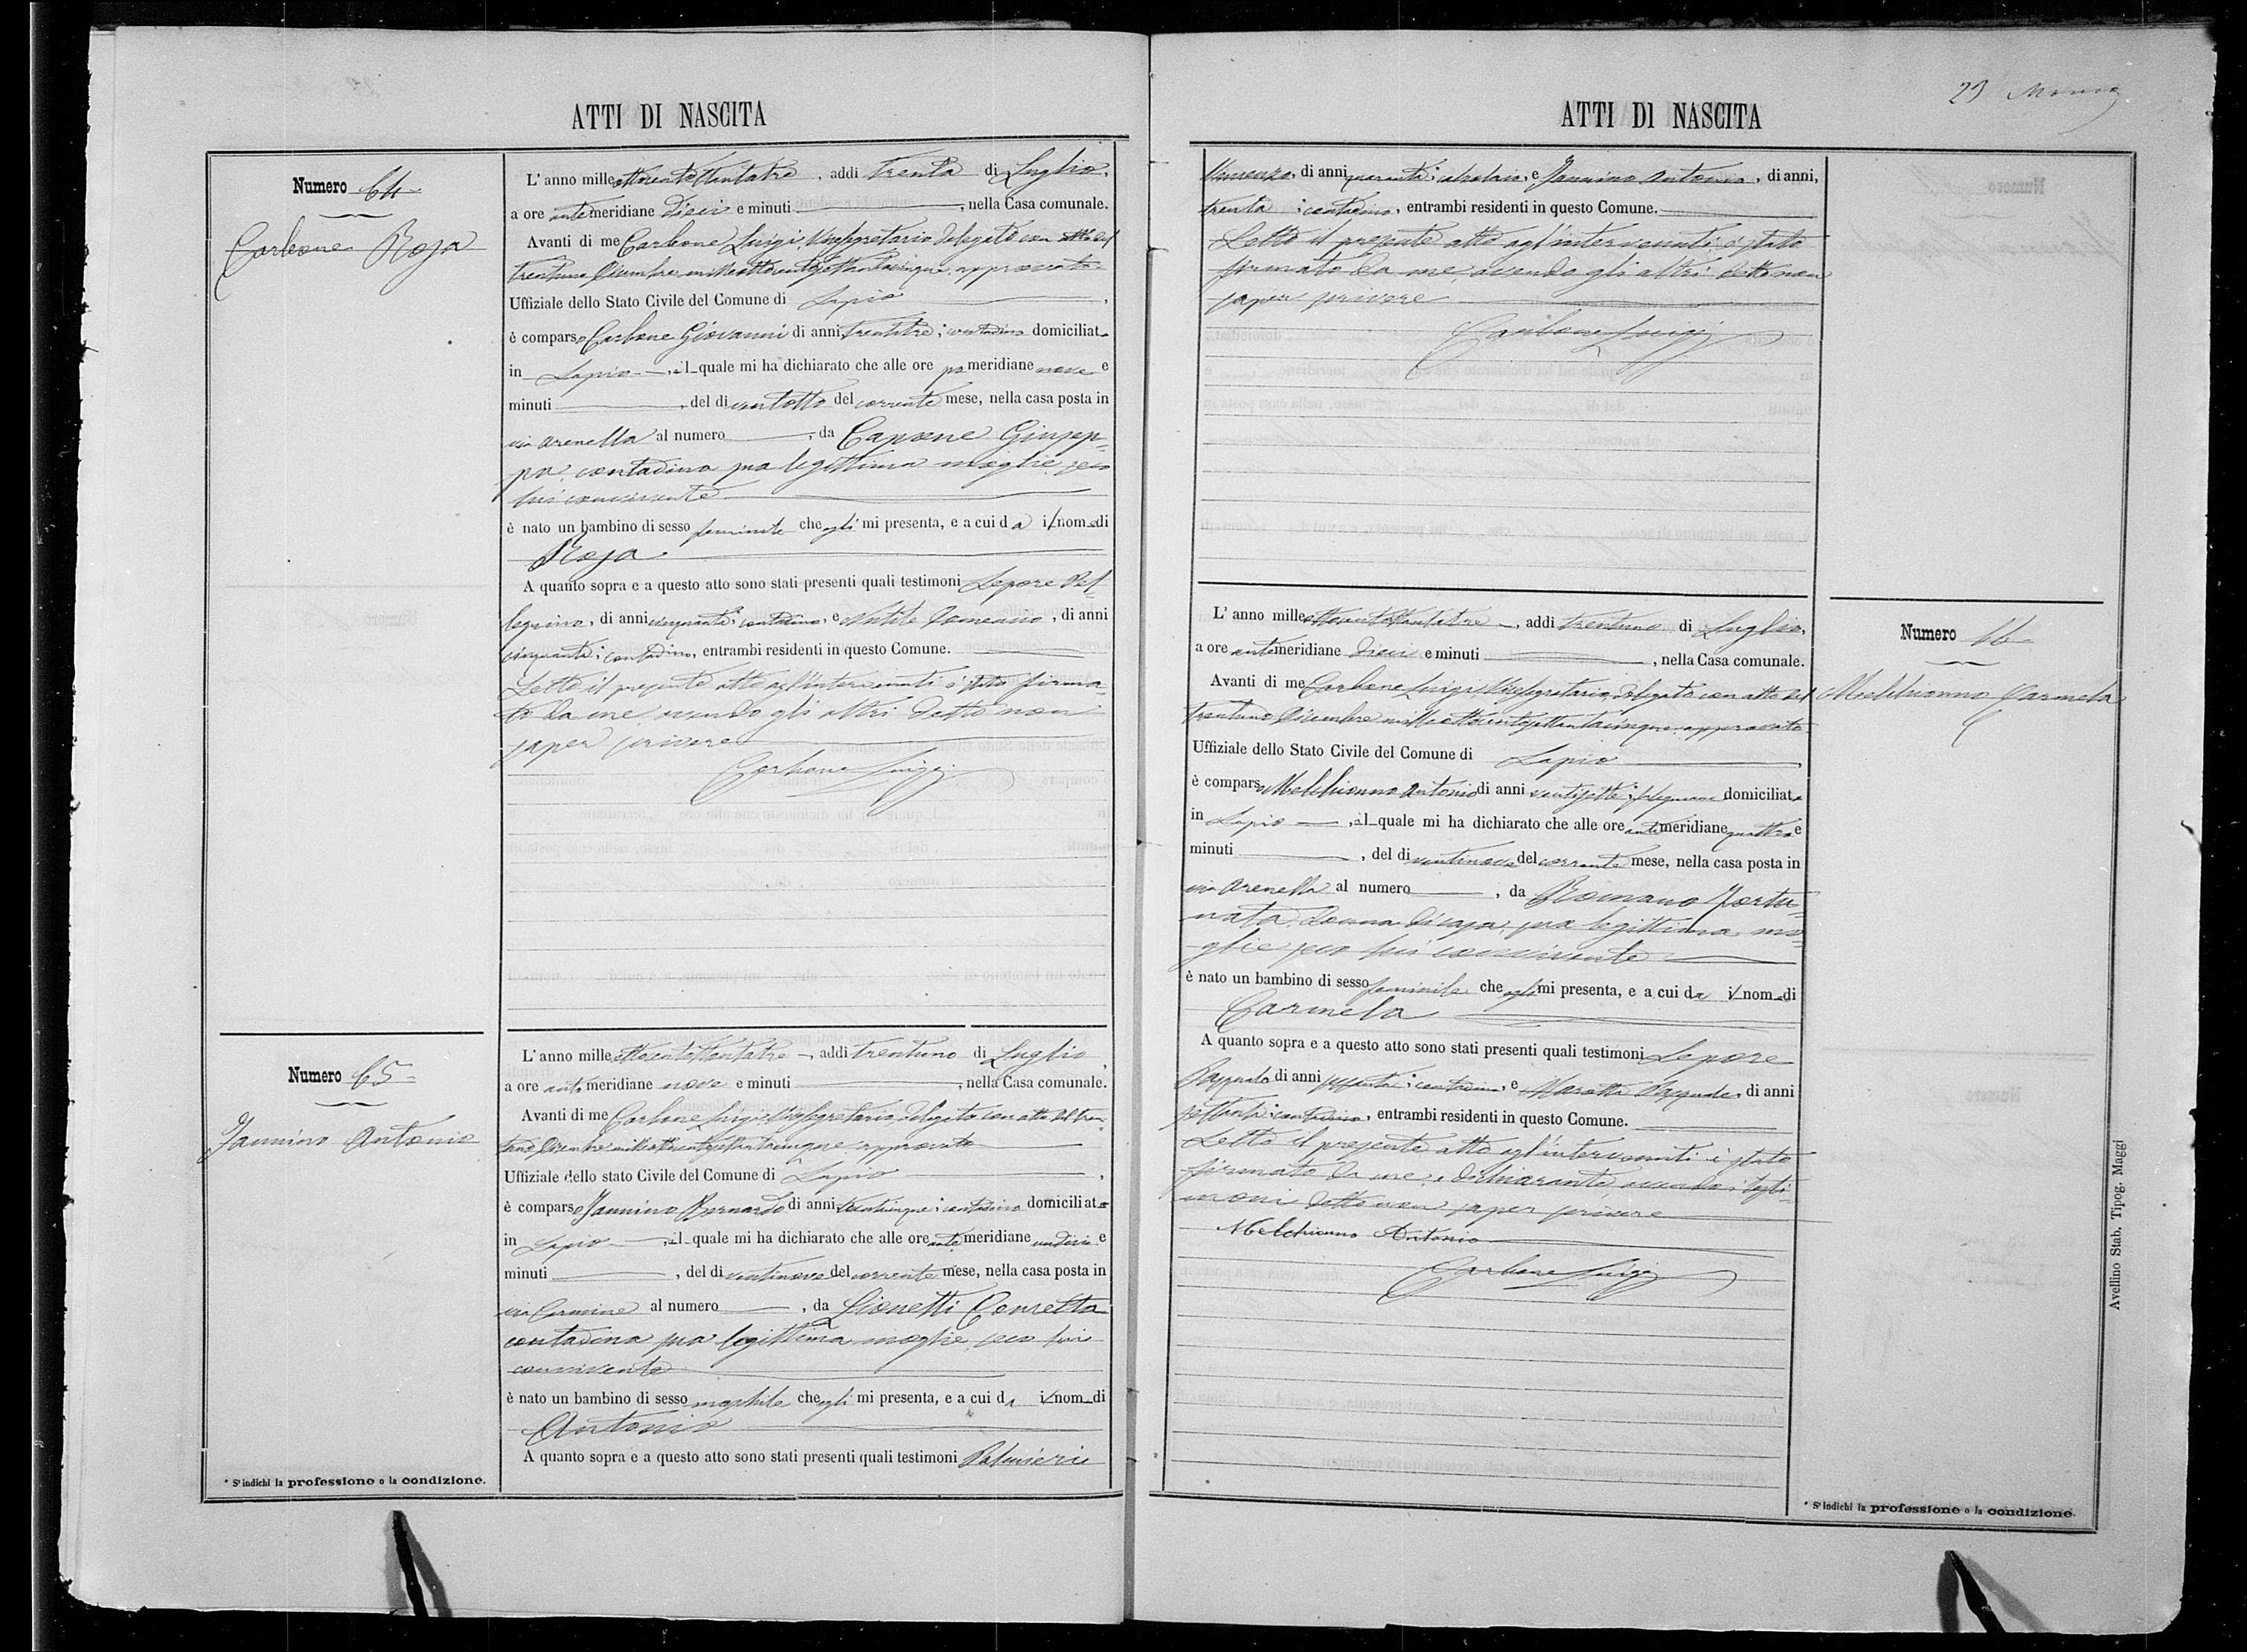 ATTI DI NASCITA
Numero 64
Carbone Rosa
L'anno mille ottocentottantatre, addi trenta di Luglio,
a ore antimeridiane dieci e minuti, nella Casa comunale.
Avanti di me Carbone Luigi, Vicesegretario delegato con atto del
trentuno Dicembre milleottocentosettantacinque, approvato
Uffiziale dello Stato Civile del Comune di Lapio,
è comparso Carbone Giovanni di anni trentatre; contadino domiciliato
in Lapio, il quale mi ha dichiarato che alle ore pomeridiane nove e
minuti, del di ventotto del corrente mese, nella casa posta in
via Arenella al numero, da Capone Giusep-
pa, contadina sua legittima moglie, seco
lui convivente
è nato un bambino di sesso feminile che egli mi presenta, e a cui da il nome di
Rosa
A quanto sopra e a questo atto sono stati presenti quali testimoni Lepore Pel-
legrino, di anni cinquanta; contadino, e Domenico, di anni
cinquanta; contadino, entrambi residenti in questo Comune.
Letto il presente atto agl'intervenuti è stato firma-
to da me avendo gli altri detto non
saper scrivere
Carbone Luigi
Numero 65
Jannino Antonio
L'anno mille ottocentottantatre, addi trentuno di Luglio,
a ore antimeridiane nove e minuti, nella Casa comunale.
Avanti di me Carbone Luigi, Vicesegretario, delegato con atto del tren-
tuno Dicembre milleottocentosettantacinque approvato
Uffiziale dello stato Civile del Comune di Lapio,
è comparso Jannino Bernardo di anni; contadino domiciliato
in Lapio, il quale mi ha dichiarato che alle ore antimeridiane undici e
minuti, del di ventinove del corrente mese, nella casa posta in
via Carmine al numero, da Lionetti Concetta
contadina sua legittima moglie, seco lui
convivente
è nato un bambino di sesso maschile che egli mi presenta, e a cui da il nome di
Antonio
A quanto sopra e a questo atto sono stati presenti quali testimoni Palmieri
* Si indichi la professione o la condizione.
ATTI DI NASCITA
Vincenzo, di anni quaranta; calzolaio, e Jannino Antonio, di anni,
trenta; contadino, entrambi residenti in questo Comune.
Letto il presente atto agl'intervenuti è stato
firmato da me, avendo gli altri detto non
saper scrivere
Carbone Luigi
Numero 66
Melchionno Carmela
L'anno mille ottocentottantatre, addi trentuno di Luglio,
a ore antimeridiane dieci e minuti, nella Casa comunale.
Avanti di me Carbone Luigi Vicesegretario, delegato con atto del
trentuno Dicembre milleottocentosettantacinque approvato
Uffiziale dello Stato Civile del Comune di Lapio
è comparso Melchionno Antonio di anni ventisette; falegname domiciliato
in Lapio, il quale mi ha dichiarato che alle ore antimeridiane quattro e
minuti, del di ventinove del corrente mese, nella casa posta in
via Arenella al numero, da Romano Fortu-
nata, donna di casa, sua legittima mo-
glie seco lui convivente
è nato un bambino di sesso feminile che egli mi presenta, e a cui da il nome di
Carmela
A quanto sopra e a questo atto sono stati presenti quali testimoni Lepore
Pasquale di anni sessanta; contadino, e Pasquale, di anni
settanta; contadino, entrambi residenti in questo Comune.
Letto il presente atto agl'intervenuti è stato
firmato da me, e dichiarante avendo i testi-
moni detto non saper scrivere
Melchionno Antonio
Carbone Luigi
* Si indichi la professione o la condizione.
Avellino Stab. Tipog. Maggi